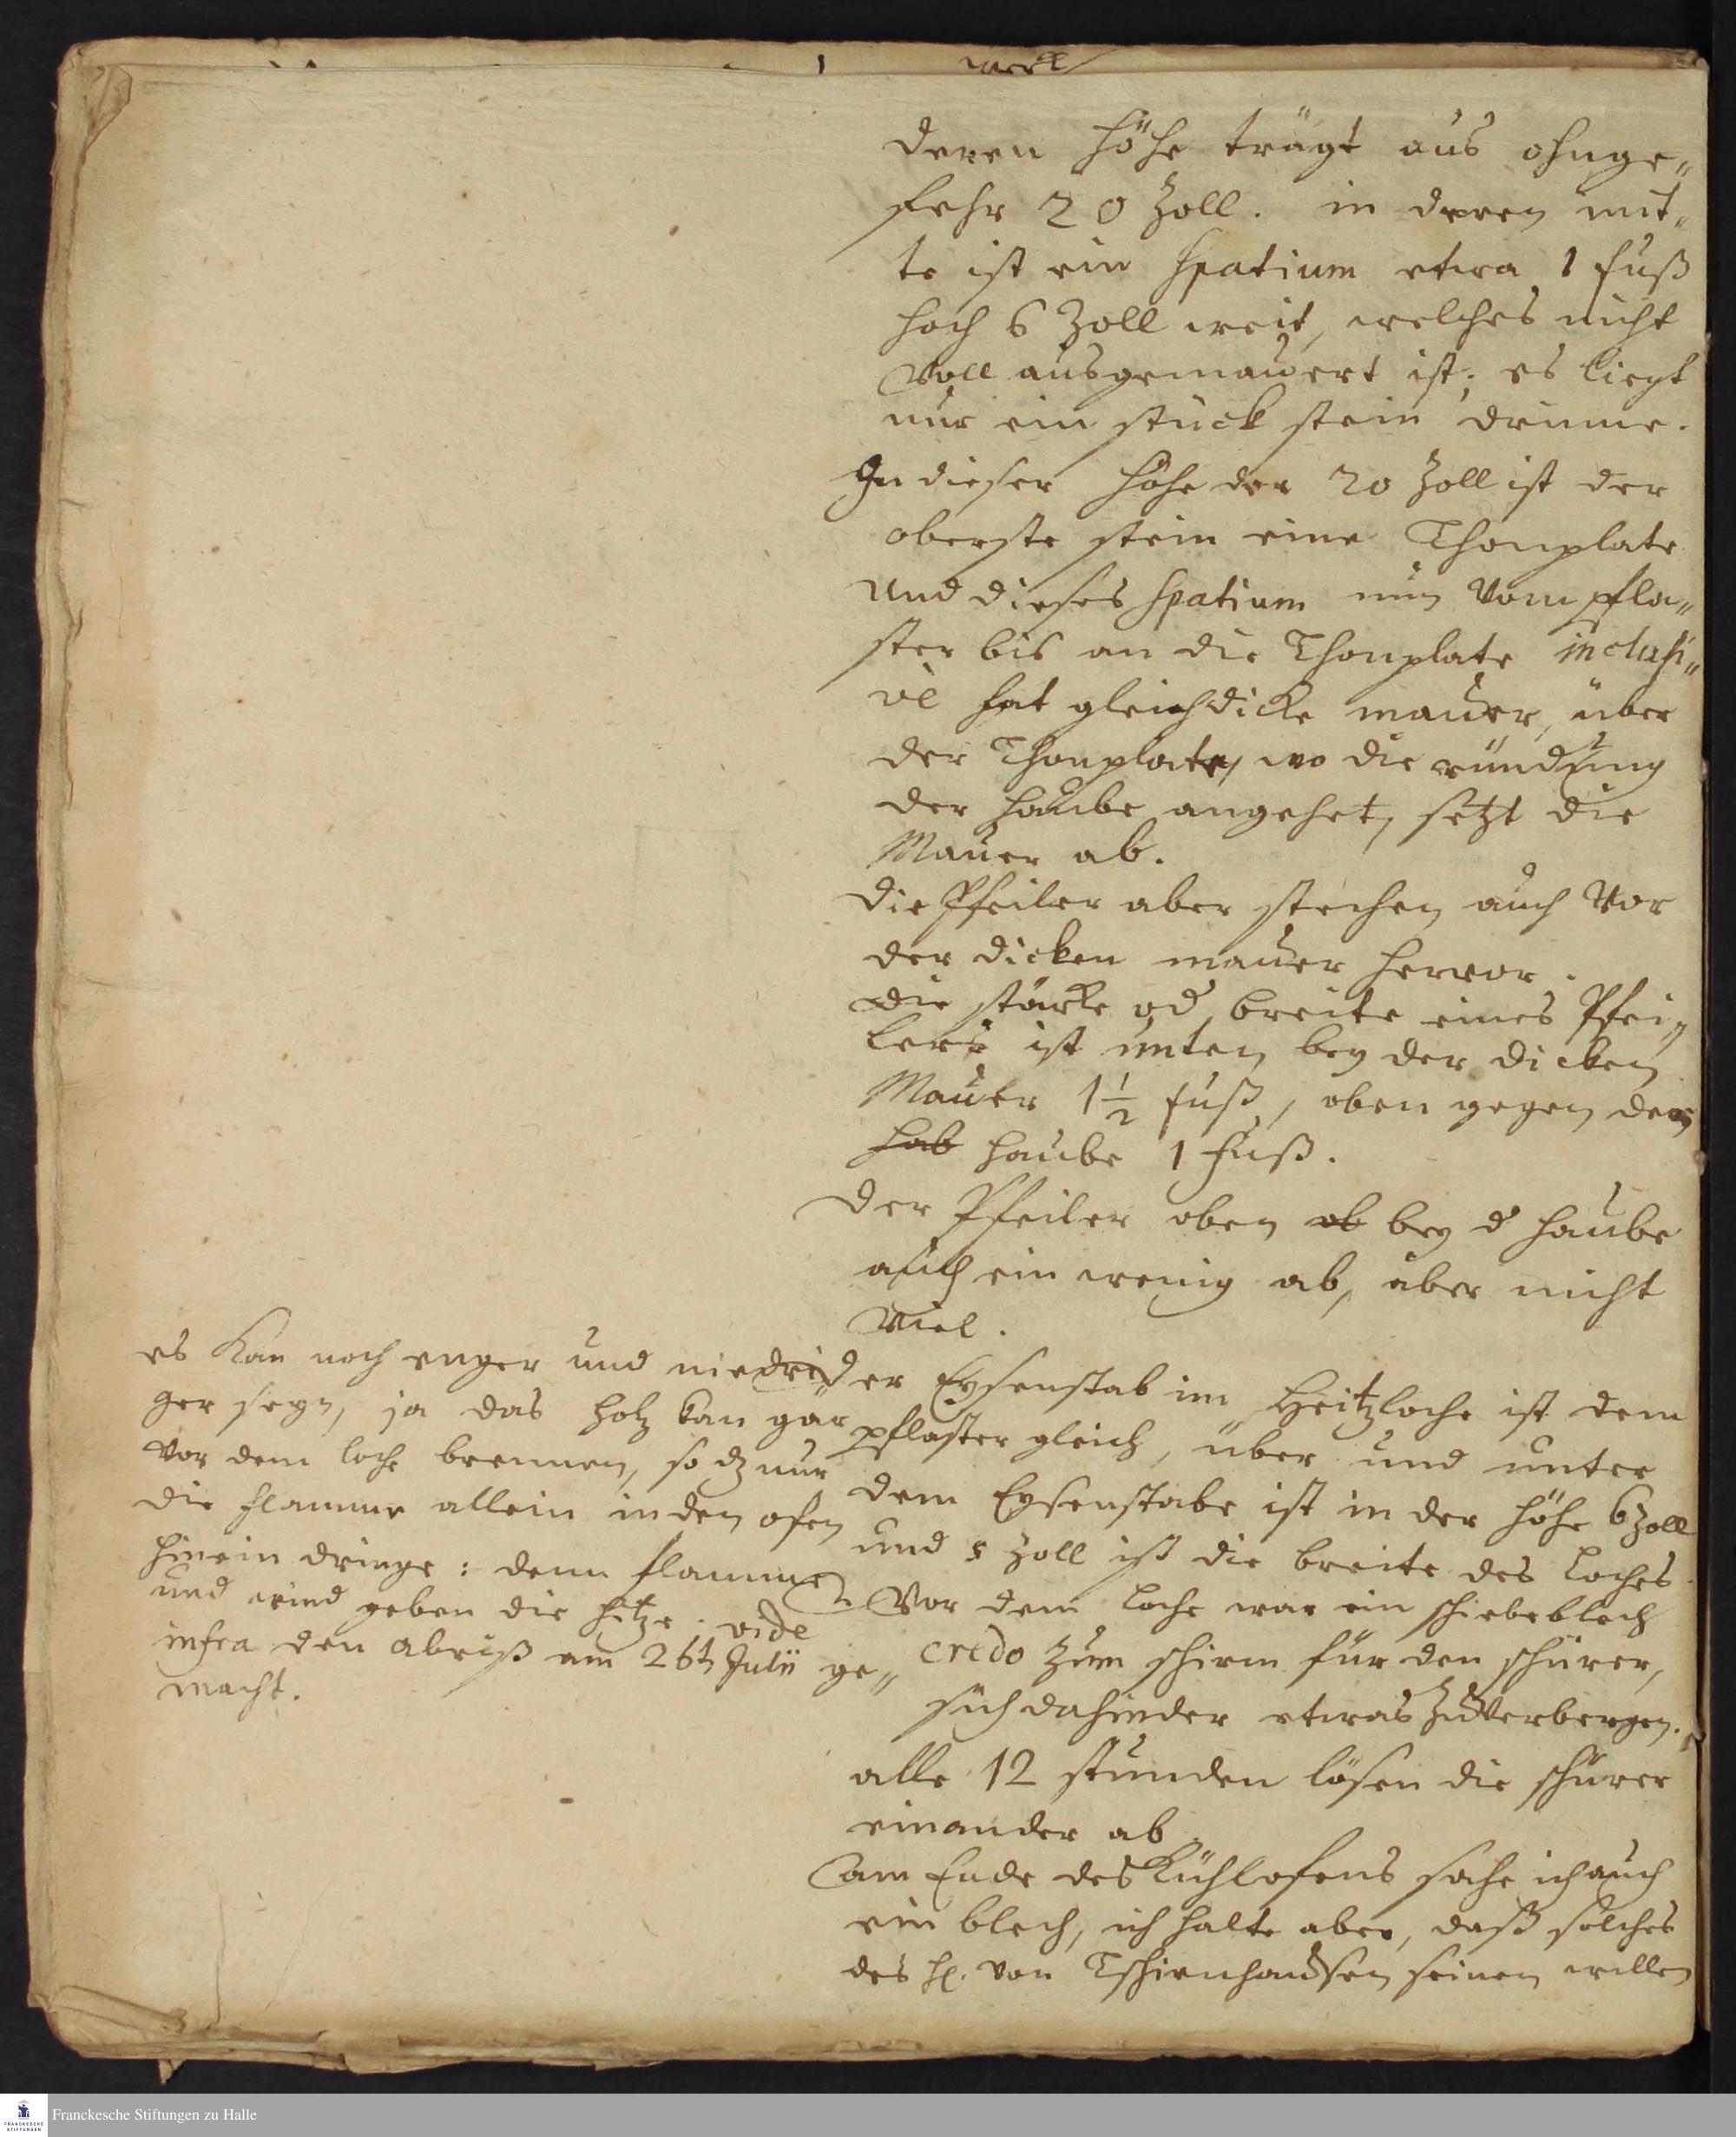 werck
deren höhe trägt aus ohnge„
fehr 20 Zoll. in deren mit„
te ist ein spatium etwa 1 fuß
hoch 6 Zoll weit, welches nicht
Voll ausgemauert ist. es liegt
nur ein stück stein drinne.
In dieser höhe der 20 Zoll ist der
oberste stein eine Thonplate
Und dieses spatium nun Vom pfla„
ster bis an die Thonplate inclusi„
ve hat gleich dicke mauer, über
der Thonplate, wo die ründung
der haube angehet, setzt die
Mauer ab.
die Pfeiler aber stechen auch Vor
der dicken mauer hervor.
die stärke od breite eines Pfei„
lers ist unten bey der dicken
Mauer 1½ fuß, oben gegen der
hab haube 1 fuß.
der Pfeiler oben ob bey d haube
auch ein wenig ab, aber nicht
Viel.
der Eysenstab im Heitzloche ist dem
pflaster gleich, über und unter
dem Eysenstabe ist in der höhe 6 Zoll
und 5 Zoll ist die breite des Loches.
Vor dem loche war ein schiebeblech
credo zum schirm für den schürer,
sich dahinder etwas zu Verbergen.
alle 12 stunden lösen die schürer
einander ab.
am Ende des Kühlofens sahe ich auch
ein blech, ich halte aber, daß solches
des H. von Tschirnhausen seinen willen
es kan noch enger und niedri„
ger seyn, ja das holz kan gar
vor dem loche brennen, so dz nur
die flamme allein in den ofen
hinein dringe: denn flamme
und wind geben die hitze. vide
infra den abriß am 26th Julii ge„
macht.
Franckesche Stiftungen zu Halle
FRANCKESCHE
STIFTUNGEN